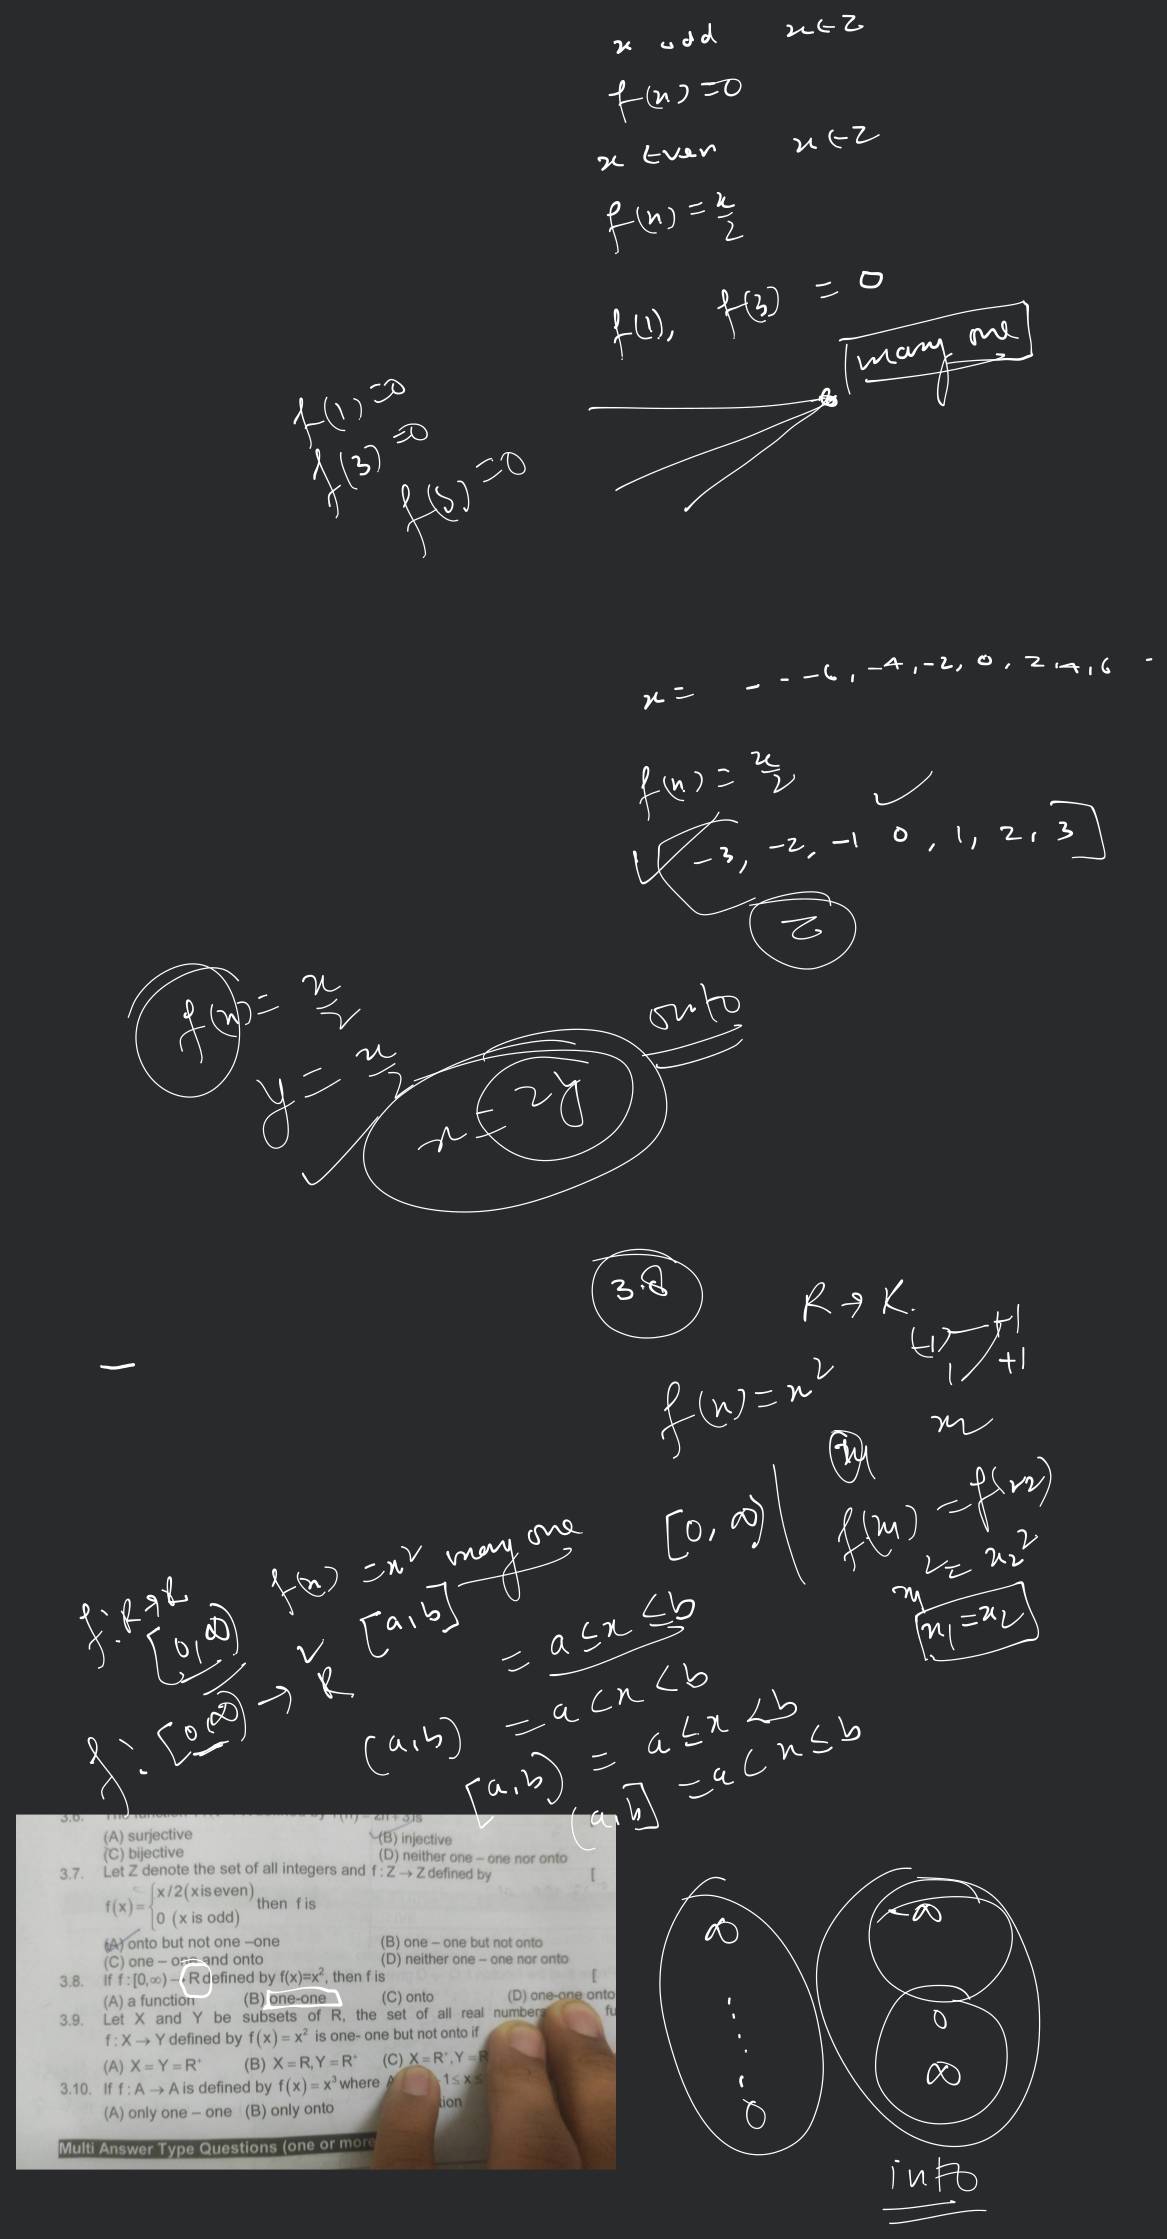 x odd x∈Z
f(x)=0
x Even x∈Z
f(x)=x/2
f(1), f(3) = 0
many one
f(1)=0
f(3)=0
f(5)=0
x= - - -6, -4, -2, 0, 2, 4, 6 -
f(x)=x/2
-3, -2, -1 0, 1, 2, 3
Z
f(x)=x/2
y=x/2
x=2y
onto
3.8
R→R
(-1) +1
1 +1
f(x)=x²
x1 x2
[0,∞)
f(x1)=f(x2)
x1²=x2²
x1=x2
f:R→R f(x)=x² many one
[0,∞)
f:[0,∞)→R
[a,b] = a≤x≤b
(a,b) = a<x<b
[a,b) = a≤x<b
(a,b] = a<x≤b
(A) surjective (B) injective
(C) bijective (D) neither one – one nor onto
3.7. Let Z denote the set of all integers and f : Z → Z defined by [
f(x)={x/2(x is even)
0 (x is odd) then f is
(A) onto but not one –one (B) one – one but not onto
(C) one – one and onto (D) neither one – one nor onto
3.8. If f : [0,∞) → R defined by f(x)=x², then f is [
(A) a function (B) one-one (C) onto (D) one-one onto
3.9. Let X and Y be subsets of R, the set of all real numbers fu
f : X → Y defined by f(x) = x² is one- one but not onto if
(A) X = Y = R⁺ (B) X = R, Y = R⁺ (C) X = R⁺, Y = R
3.10. If f : A → A is defined by f(x) = x³ where A 1≤x≤
(A) only one – one (B) only onto tion
Multi Answer Type Questions (one or more
∞
0
-∞
0
∞
into